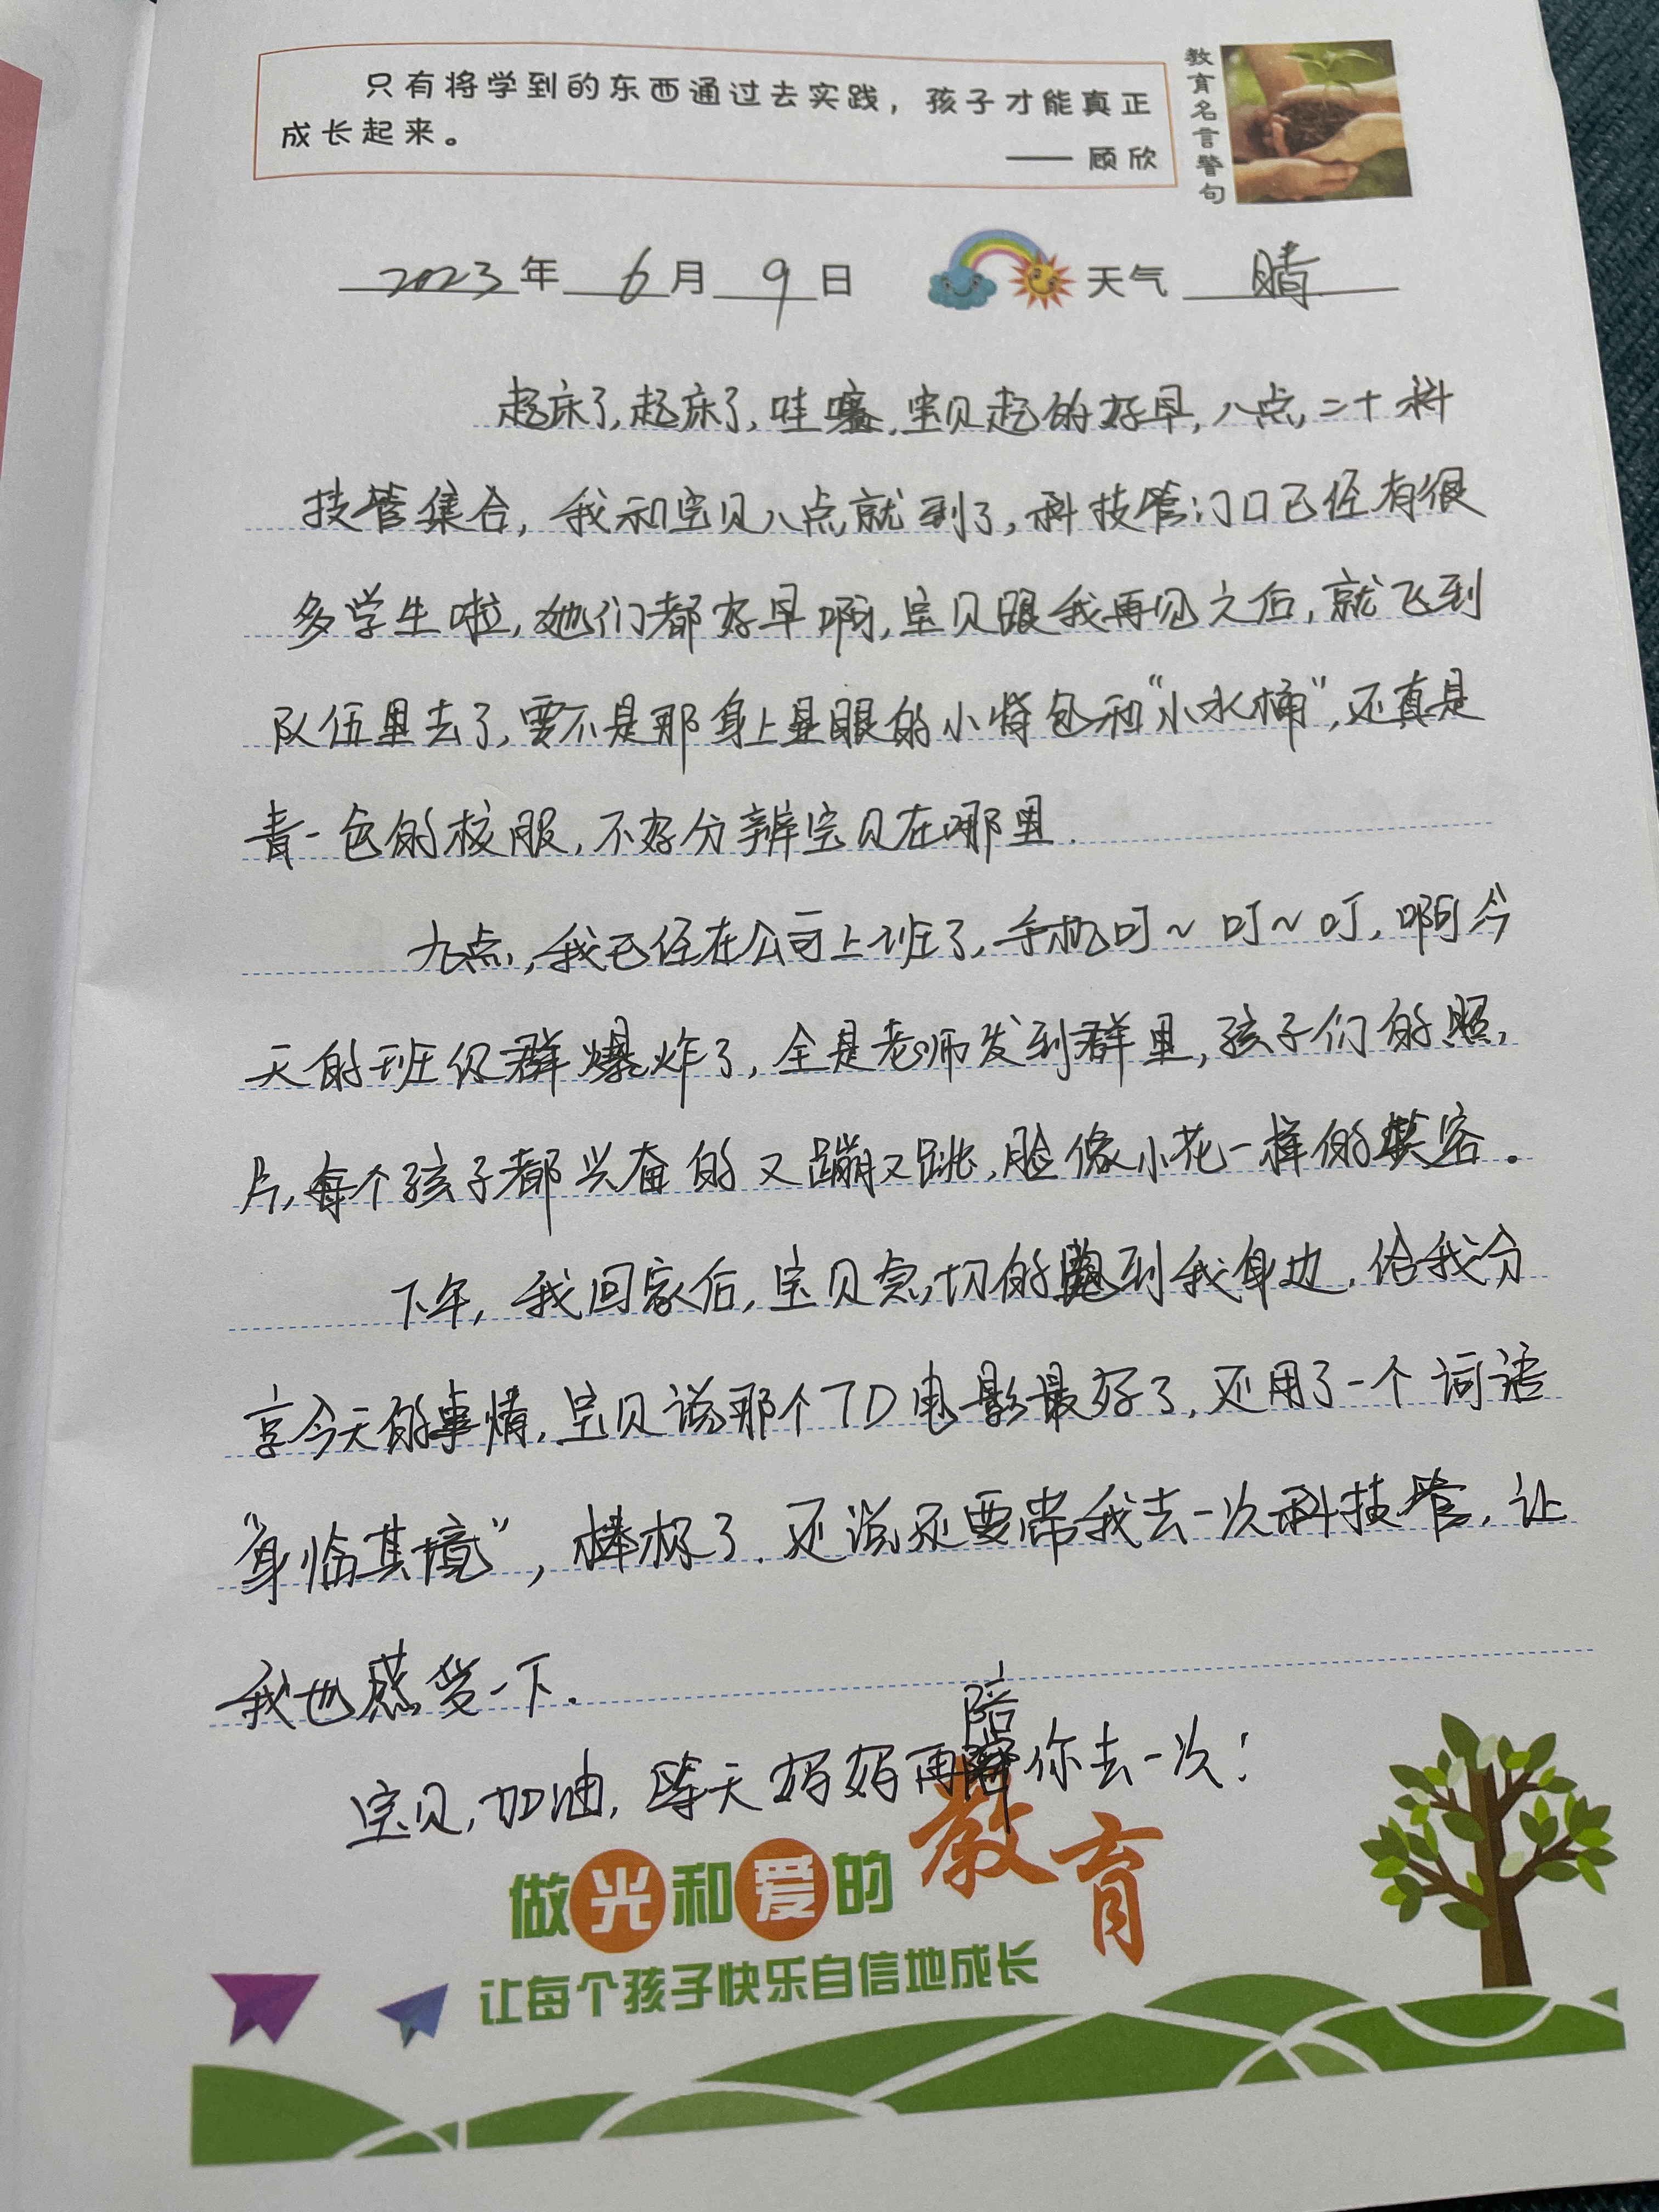 只有将学到的东西通过去实践，孩子才能真正
成长起来。
—— 顾欣
教育名言警句
2023年 6月 9日 天气 晴
起床了,起床了,哇塞,宝贝起的好早,八点,二十科
技管集合,我和宝贝八点就到了,科技管门口已经有很
多学生啦,她们都好早啊,宝贝跟我再见之后,就飞到
队伍里去了,要不是那身上显眼的小背包和“小水桶”,还真是
青一色的校服,不好分辨宝贝在哪里.
九点,我已经在公司上班了,手机叮~叮~叮,啊今
天的班级群爆炸了,全是老师发到群里,孩子们的照,
片,每个孩子都兴奋的又蹦又跳,脸像小花一样的笑容。
下午,我回家后,宝贝急切的跑到我身边,给我分
享今天的事情,宝贝说那个7D电影最好了,还用了一个词语
“身临其境”,棒极了.还说还要带我去一次科技管,让
我也感受一下.
宝贝,加油,等天妈妈再陪你去一次!
做光和爱的教育
让每个孩子快乐自信地成长